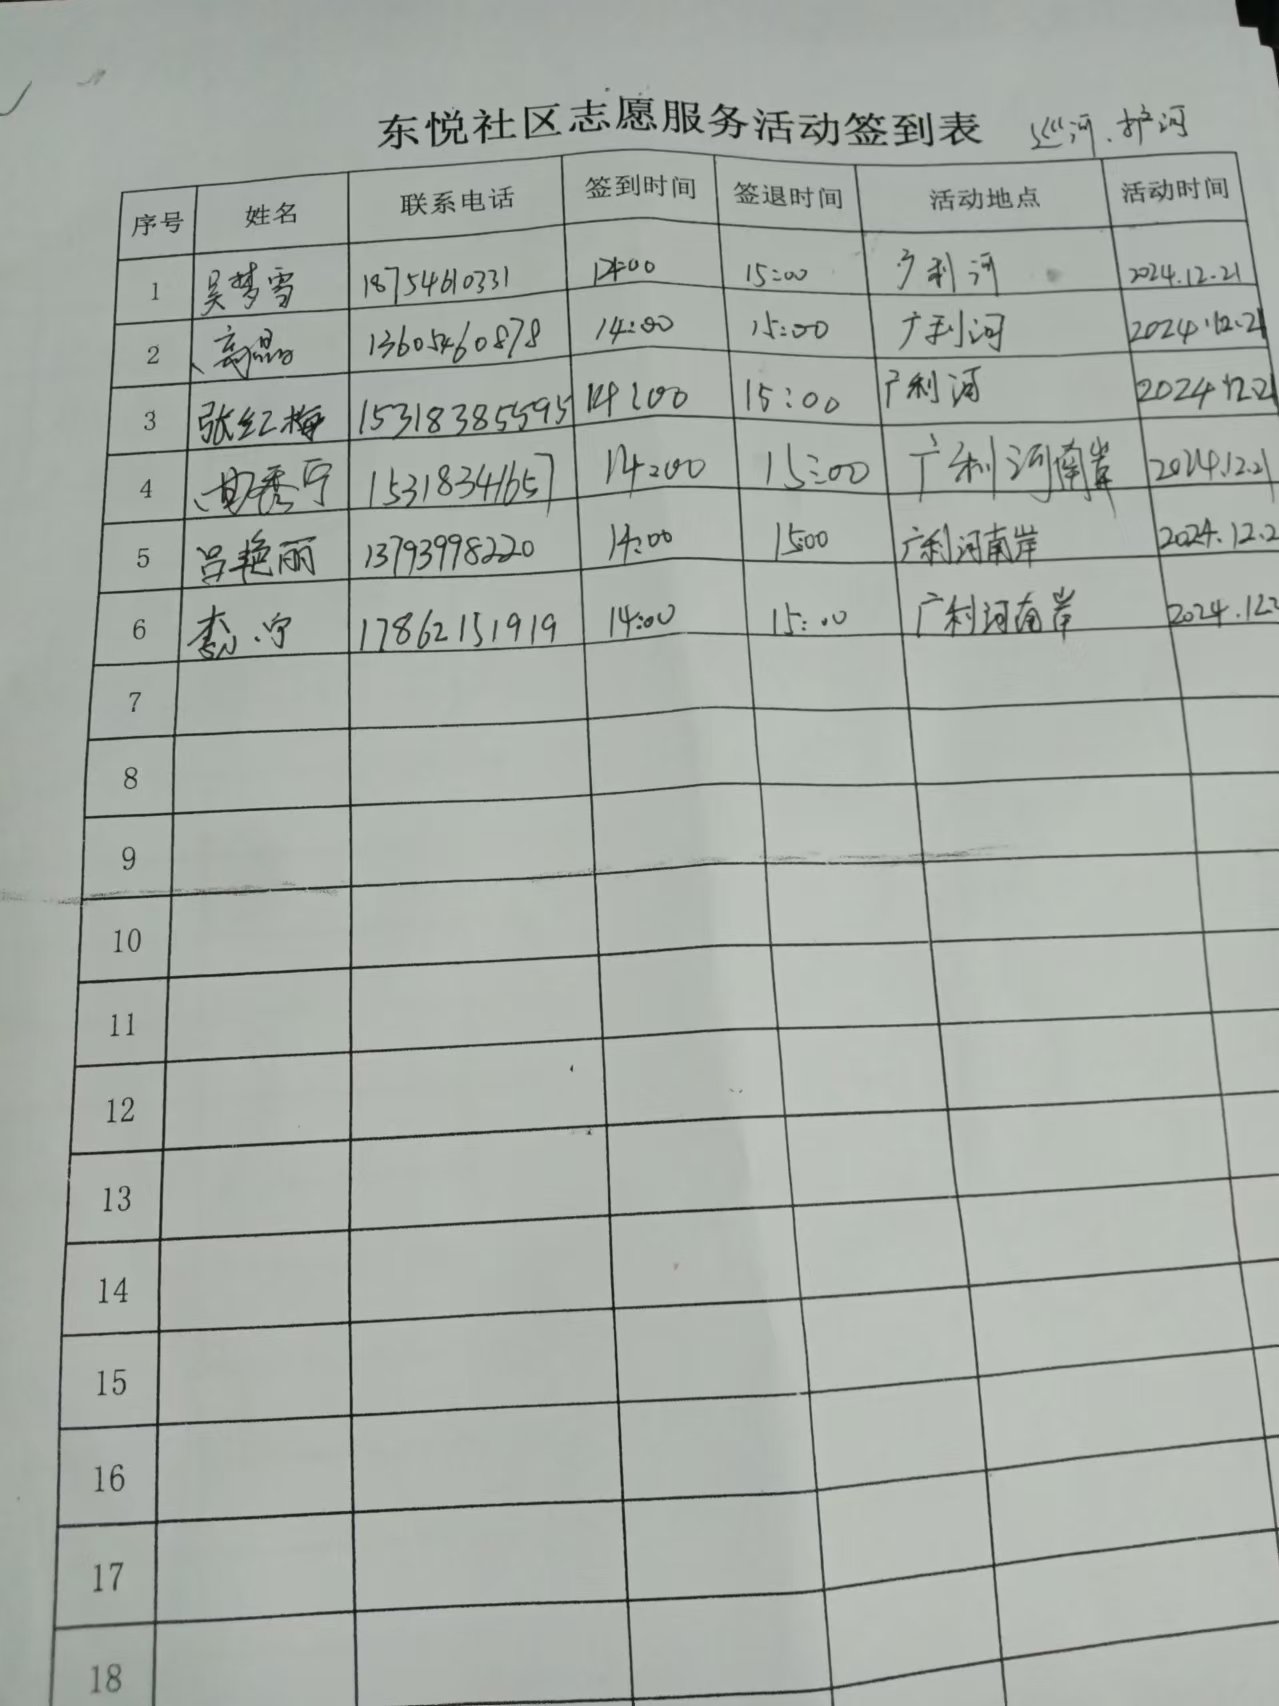 东悦社区志愿服务活动签到表 巡河、护河
序号 姓名 联系电话 签到时间 签退时间 活动地点 活动时间
1 吴梦雪 18754610331 14:00 15:00 广利河 2024.12.21
2 高晶 13605460878 14:00 15:00 广利河 2024.12.21
3 张红梅 15318385595 14:00 15:00 广利河 2024.12.21
4 秀宁 15318341657 14:00 15:00 广利河南岸 2024.12.21
5 吕艳丽 13793998220 14:00 15:00 广利河南岸 2024.12.2
6 李宁 17862151919 14:00 15:00 广利河南岸 2024.12.2
7
8
9
10
11
12
13
14
15
16
17
18